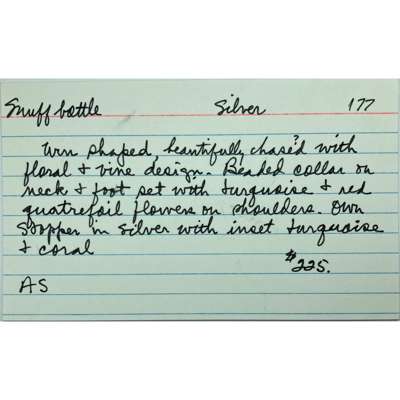 Snuff bottle Silver 177
Urn shaped, beautifully chas'd with
floral & vine design. Beaded collar on
neck & foot set with turquoise & red
quatrefoil flowers on shoulders. Own
stopper in silver with inset turquoise
& coral
$225.
AS